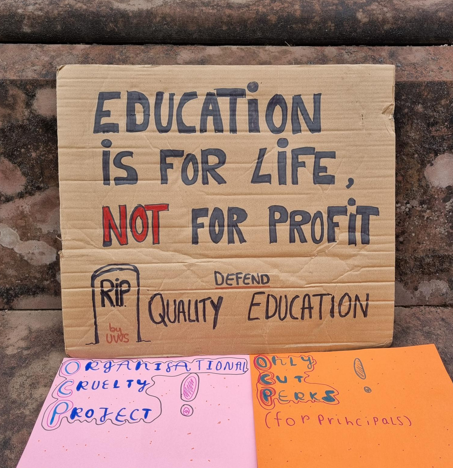 EDUCATION
iS FOR LiFE,
NOT FOR PROFiT
RIP
by
UWS
DEFEND
QUALITY EDUCATION
ORGANISATIONAL
CRUELTY
PROJECT !
ONLY
CUT
PERKS !
(for principals)